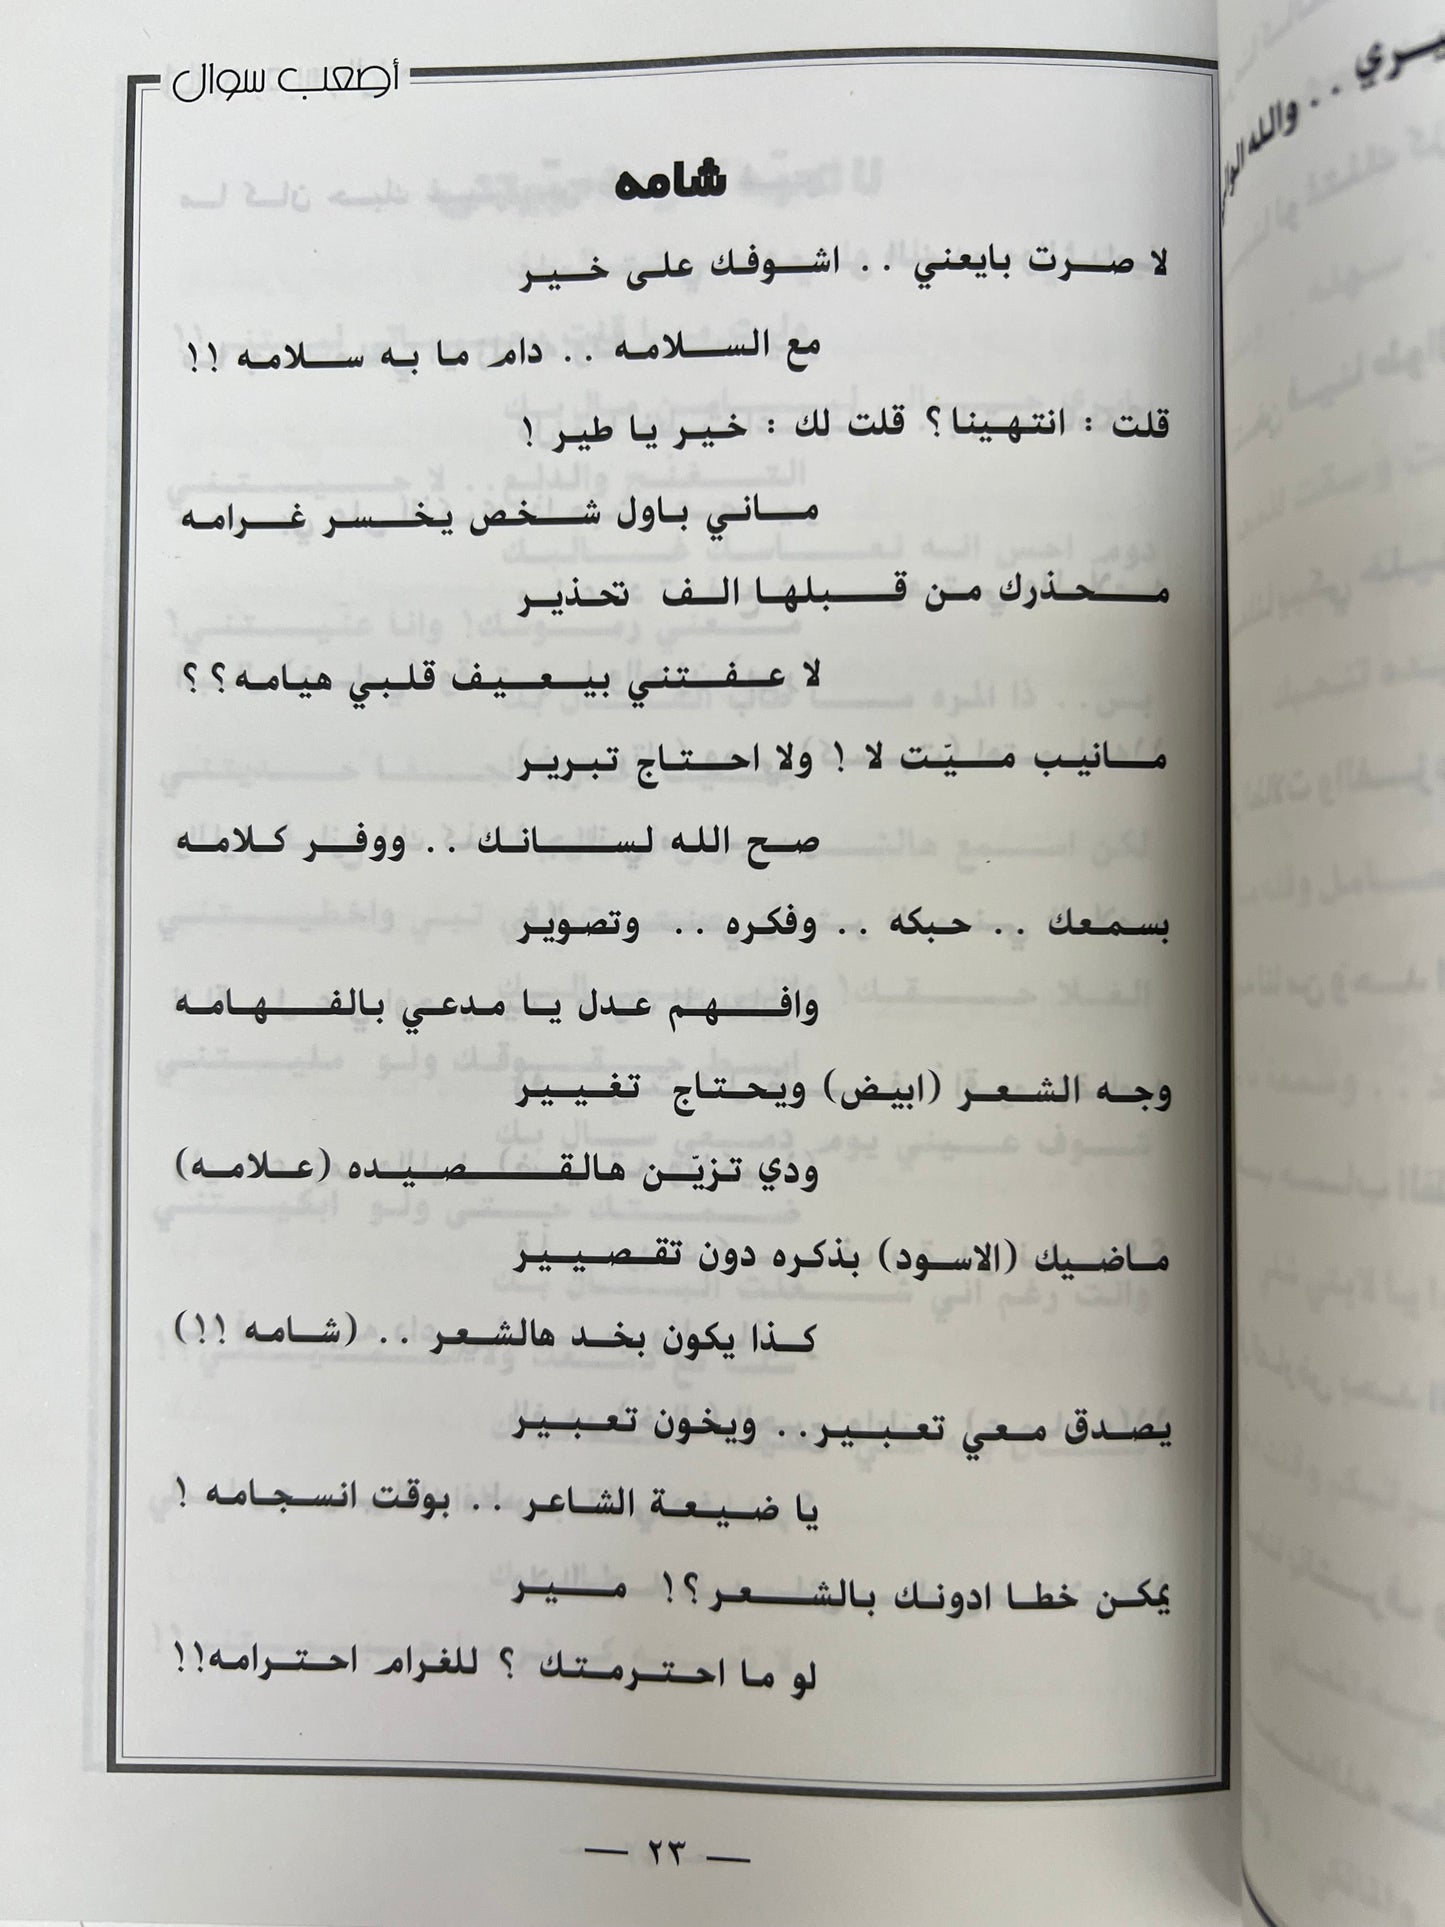 أصعب سوال
شامه
لا صرت بايعني .. اشوفك على خير
مع السلامه .. دام ما به سلامه !!
قلت : انتهينا؟ قلت لك : خير يا طير !
ماني باول شخص يخسر غرامه
محذرك من قبلها الف تحذير
لا عفتني بيعيف قلبي هيامه؟؟
مانيب ميّت لا ! ولا احتاج تبرير
صح الله لسانك .. ووفر كلامه
بسمعك .. حبكه .. وفكره .. وتصوير
وافهم عدل يا مدعي بالفهامه
وجه الشعر (ابيض) ويحتاج تغيير
ودي تزيّن هالقصيده (علامه)
ماضيك (الاسود) بذكره دون تقصيير
كذا يكون بخد هالشعر .. (شامه !!)
يصدق معي تعبير.. ويخون تعبير
يا ضيعة الشاعر .. بوقت انسجامه !
يمكن خطا ادونك بالشعر؟! مير
لو ما احترمتك ؟ للغرام احترامه!!
— ٢٣ —
يري .. والله